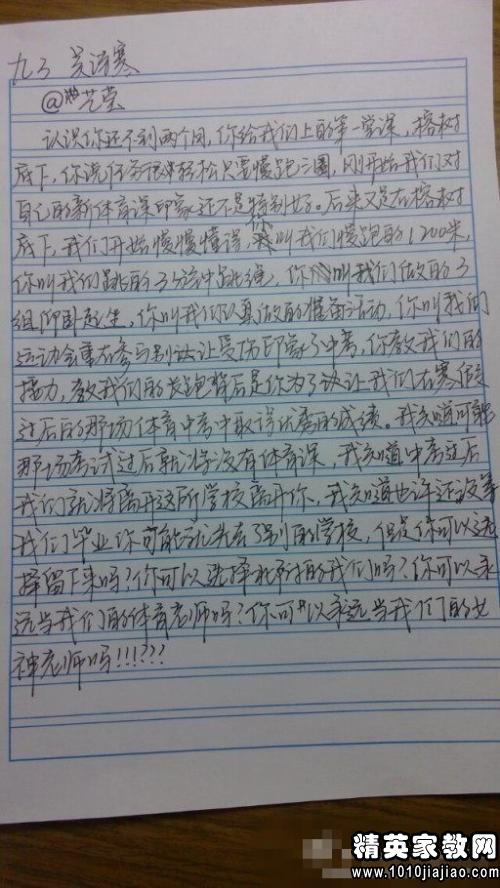 九3 吴诗寒
@ 艺莹
认识你还不到两个月,你给我们上的第一堂课,榕树
底下,你说任务很轻松只要慢跑三圈,刚开始我们对
自己的新体育课印象还不是特别好。后来又是在榕树
底下,我们开始慢慢懂得,你叫我们慢跑的1200米,
你叫我们跳的3分钟跳绳,你叫我们做的3
组仰卧起坐,你叫我们认真做的准备活动,你叫我们
运动会重在参与别让受伤影响了中考,你教我们的
接力,教我们的长跑背后是你为了让我们在寒假
过后的那场体育中考中取得优秀的成绩。我知道可能
那场考试过后就将没有体育课,我知道中考过后
我们就将离开这所学校离开你,我知道也许还没等
我们毕业你可能就先去了别的学校,但是你可以选
择留下来吗?你可以选择 我们吗?你可以永
远当我们的体育老师吗?你可以永远当我们的女
神老师吗!!!???
精英家教网
www.1010jiajiao.com